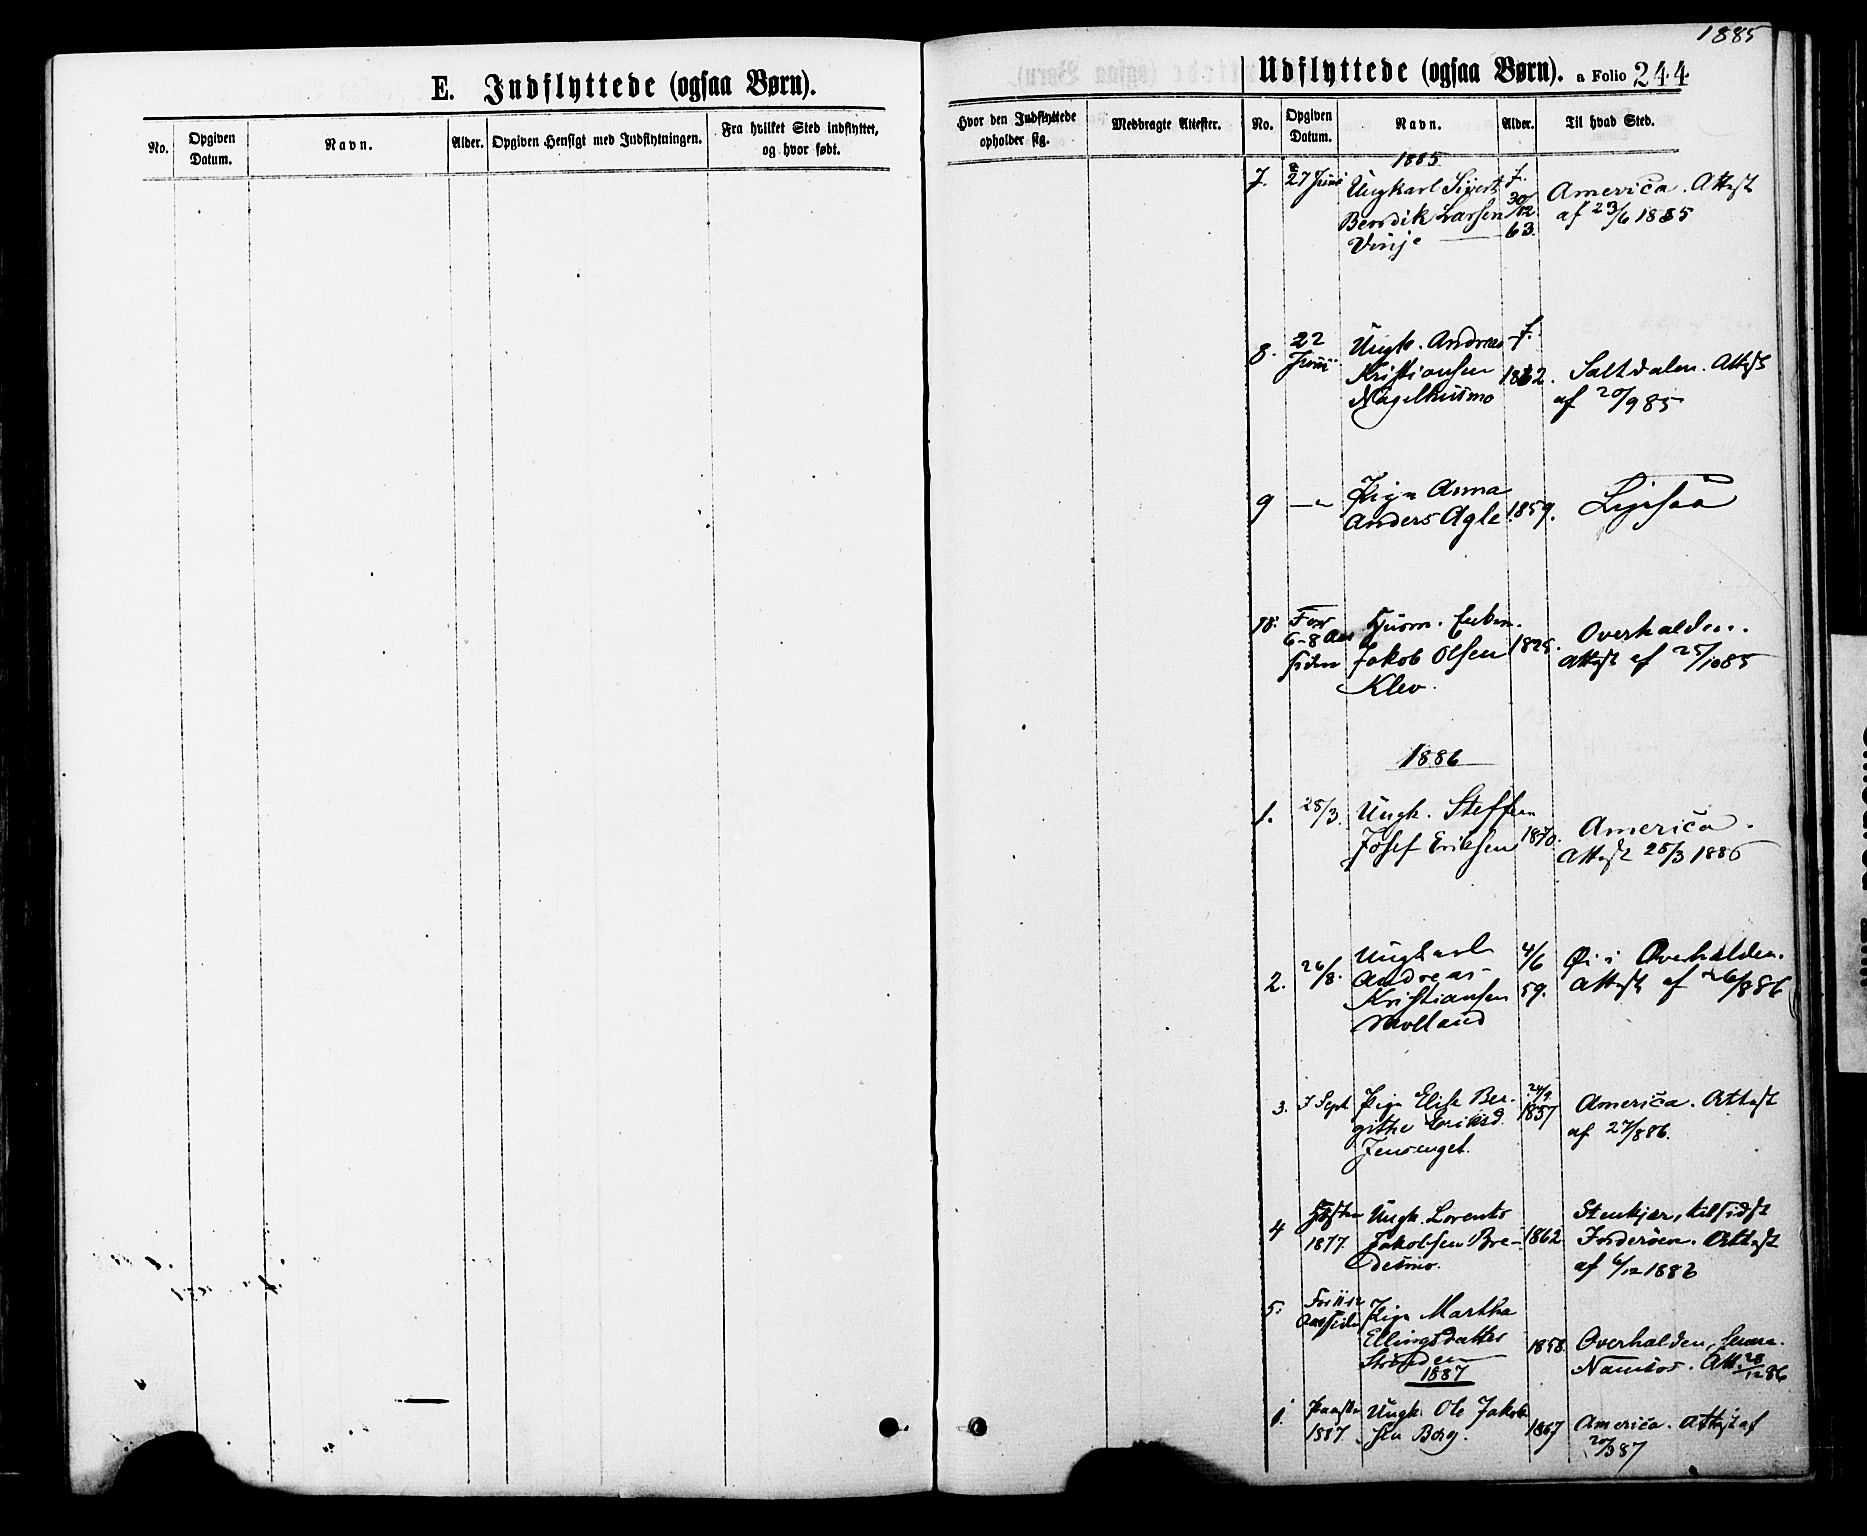 1885
E. Indflyttede (ogsaa Børn).
Udflyttede (ogsaa Børn). a Folio 244
No.
Opgiven Datum.
Navn.
Alder.
Opgiven Hensigt med Indflytningen.
Fra hvilket Sted indflyttet, og hvor født.
Hvor den Indflyttede opholder sig.
Medbragte Attester.
No.
Opgiven Datum.
Navn.
Alder.
Til hvad Sted.
1885
7. 27 Juni Ungkarl Sivert f. America. Attest
Bendik Larsen 30/12 af 23/6 1885
Vinje 63.
8. 22 Ungk. Andreas f.
Juni Kristiansen 1862. Saltdalen. Attest
Nagelhusmo af 20/9 85
9 Pige Anna
Anders Agle 1859.
10. For Husm. Enkem.
6-8 Aar Jakob Olsen 1825. Overhalden.
siden Klev. Attest af 25/10 85
1886
1. 25/3. Ungk. Steffen
Josef Eriksen 1870. America.
Attest 25/3 1886
2. 26/8. Ungkarl 4/6 Øi i Overhalden.
Andreas 59. Attest af 26/8 86
Kristiansen
Moland
3. 7 Sept Pige Elise Ber- 24/9 America. Attest
githe Eriksd. 1857 af 27/8 86.
Jensenget.
4 Høsten Ungk. Lorents Stenkjær, tilsidst
1877. Jakobsen Bre- 1862. Inderøen. Attest
demo. af 6/12 1886
5. For 11-12 Pige Martha
Aar siden Ellingsdatter 1858. Overhalden, senere
Strinden Namsos. Att. 28/12 86
1887
1. Paaske Ungk. Ole Jakob- 1867 America. Attest af
1887. sen Borg. 20/3 87